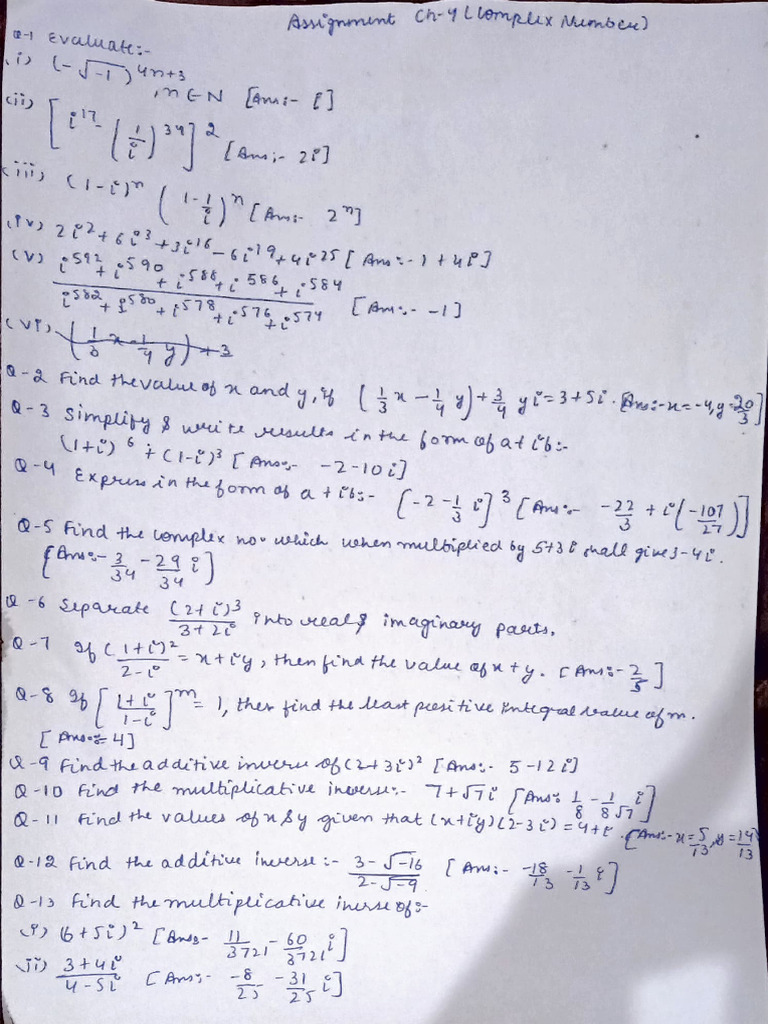 Assignment Ch-4 (Complex Number)
Q-1 Evaluate:-
(i) (-√-1)^4n+3, n∈N [Ans:- i]
(ii) [i^17 - (1/i)^34]^2 [Ans:- 2i]
(iii) (1-i)^n (1-1/i)^n [Ans:- 2^n]
(iv) 2i^2+6i^3+3i^16-6i^19+4i^25 [Ans:- 1+4i]
(v) i^592+i^590+i^588+i^586+i^584 / i^582+i^580+i^578+i^576+i^574 [Ans:- -1]
(vi) (1/3 x - 1/4 y)+3
Q-2 Find the value of x and y, if (1/3 x - 1/4 y) + 3/4 yi = 3+5i. [Ans:- x=-4, y=20/3]
Q-3 Simplify & write results in the form of a+ib:-
(1+i)^6 + (1-i)^3 [Ans:- -2-10i]
Q-4 Express in the form of a+ib:- [-2-1/3 i]^3 [Ans:- -22/3 + i(-107/27)]
Q-5 Find the complex no. which when multiplied by 5+3i shall give 3-4i.
[Ans:- 3/34 - 29/34 i]
Q-6 Separate (2+i)^3/3+2i into real & imaginary parts.
Q-7 If (1+i)^2/2-i = x+iy, then find the value of x+y. [Ans:- 2/5]
Q-8 If [1+i/1-i]^m = 1, then find the least positive integral value of m.
[Ans:- 4]
Q-9 Find the additive inverse of (2+3i)^2 [Ans:- 5-12i]
Q-10 Find the multiplicative inverse:- 7+√7i [Ans: 1/8 - 1/8√7 i]
Q-11 Find the values of x & y given that (x+iy)(2-3i)=4+i. [Ans:- x=5/13, y=14/13]
Q-12 Find the additive inverse:- 3-√-16/2-√-9 [Ans:- -18/13 - 1/13 i]
Q-13 Find the multiplicative inerse of:-
i) (6+5i)^2 [Ans- 11/3721 - 60/3721 i]
ii) 3+4i/4-5i [Ans:- -8/25 - 31/25 i]